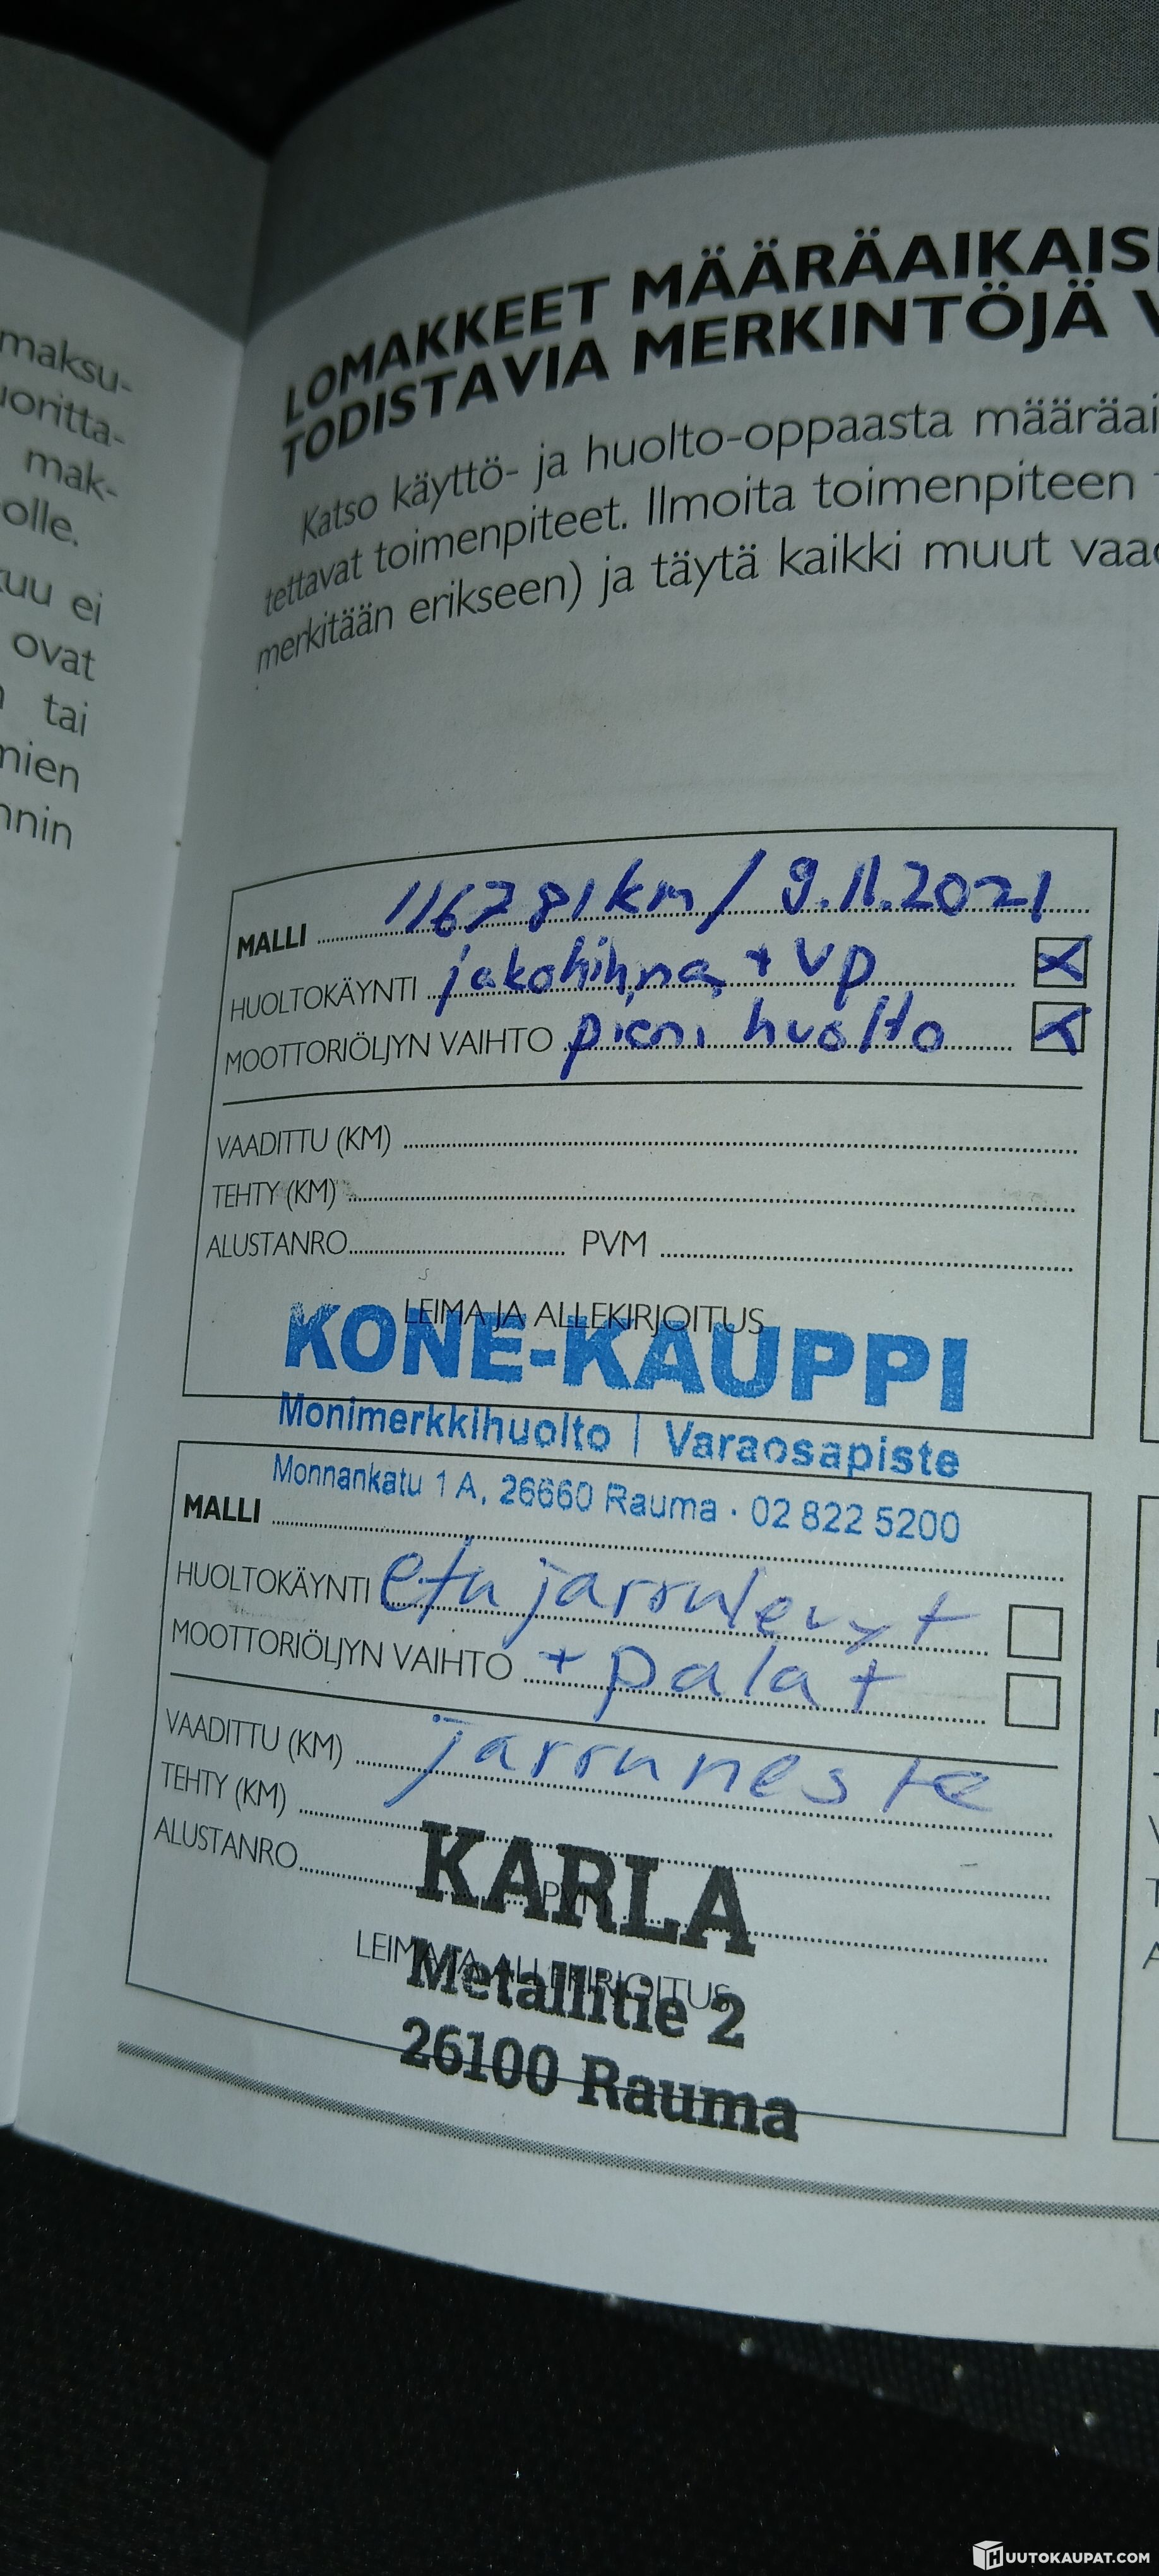 maksu-
uoritta-
mak-
olle.
kuu ei
ovat
tai
mien
nnin
LOMAKKEET MÄÄRÄAIKAIS
TODISTAVIA MERKINTÖJÄ V
Katso käyttö- ja huolto-oppaasta määräai
tettavat toimenpiteet. Ilmoita toimenpiteen
merkitään erikseen) ja täytä kaikki muut vaad
MALLI 116781km / 9.11.2021
HUOLTOKÄYNTI jakohihna + vp X
MOOTTORIÖLJYN VAIHTO pieni huolto X
VAADITTU (KM)
TEHTY (KM)
ALUSTANRO PVM
LEIMA JA ALLEKIRJOITUS
KONE-KAUPPI
Monimerkkihuolto | Varaosapiste
Monnankatu 1 A, 26660 Rauma · 02 822 5200
MALLI
HUOLTOKÄYNTI etujarrulevyt
MOOTTORIÖLJYN VAIHTO + palat
VAADITTU (KM) jarruneste
TEHTY (KM)
ALUSTANRO PVM
KARLA
LEIMA JA ALLEKIRJOITUS
Metallitie 2
26100 Rauma
HUUTOKAUPAT.COM